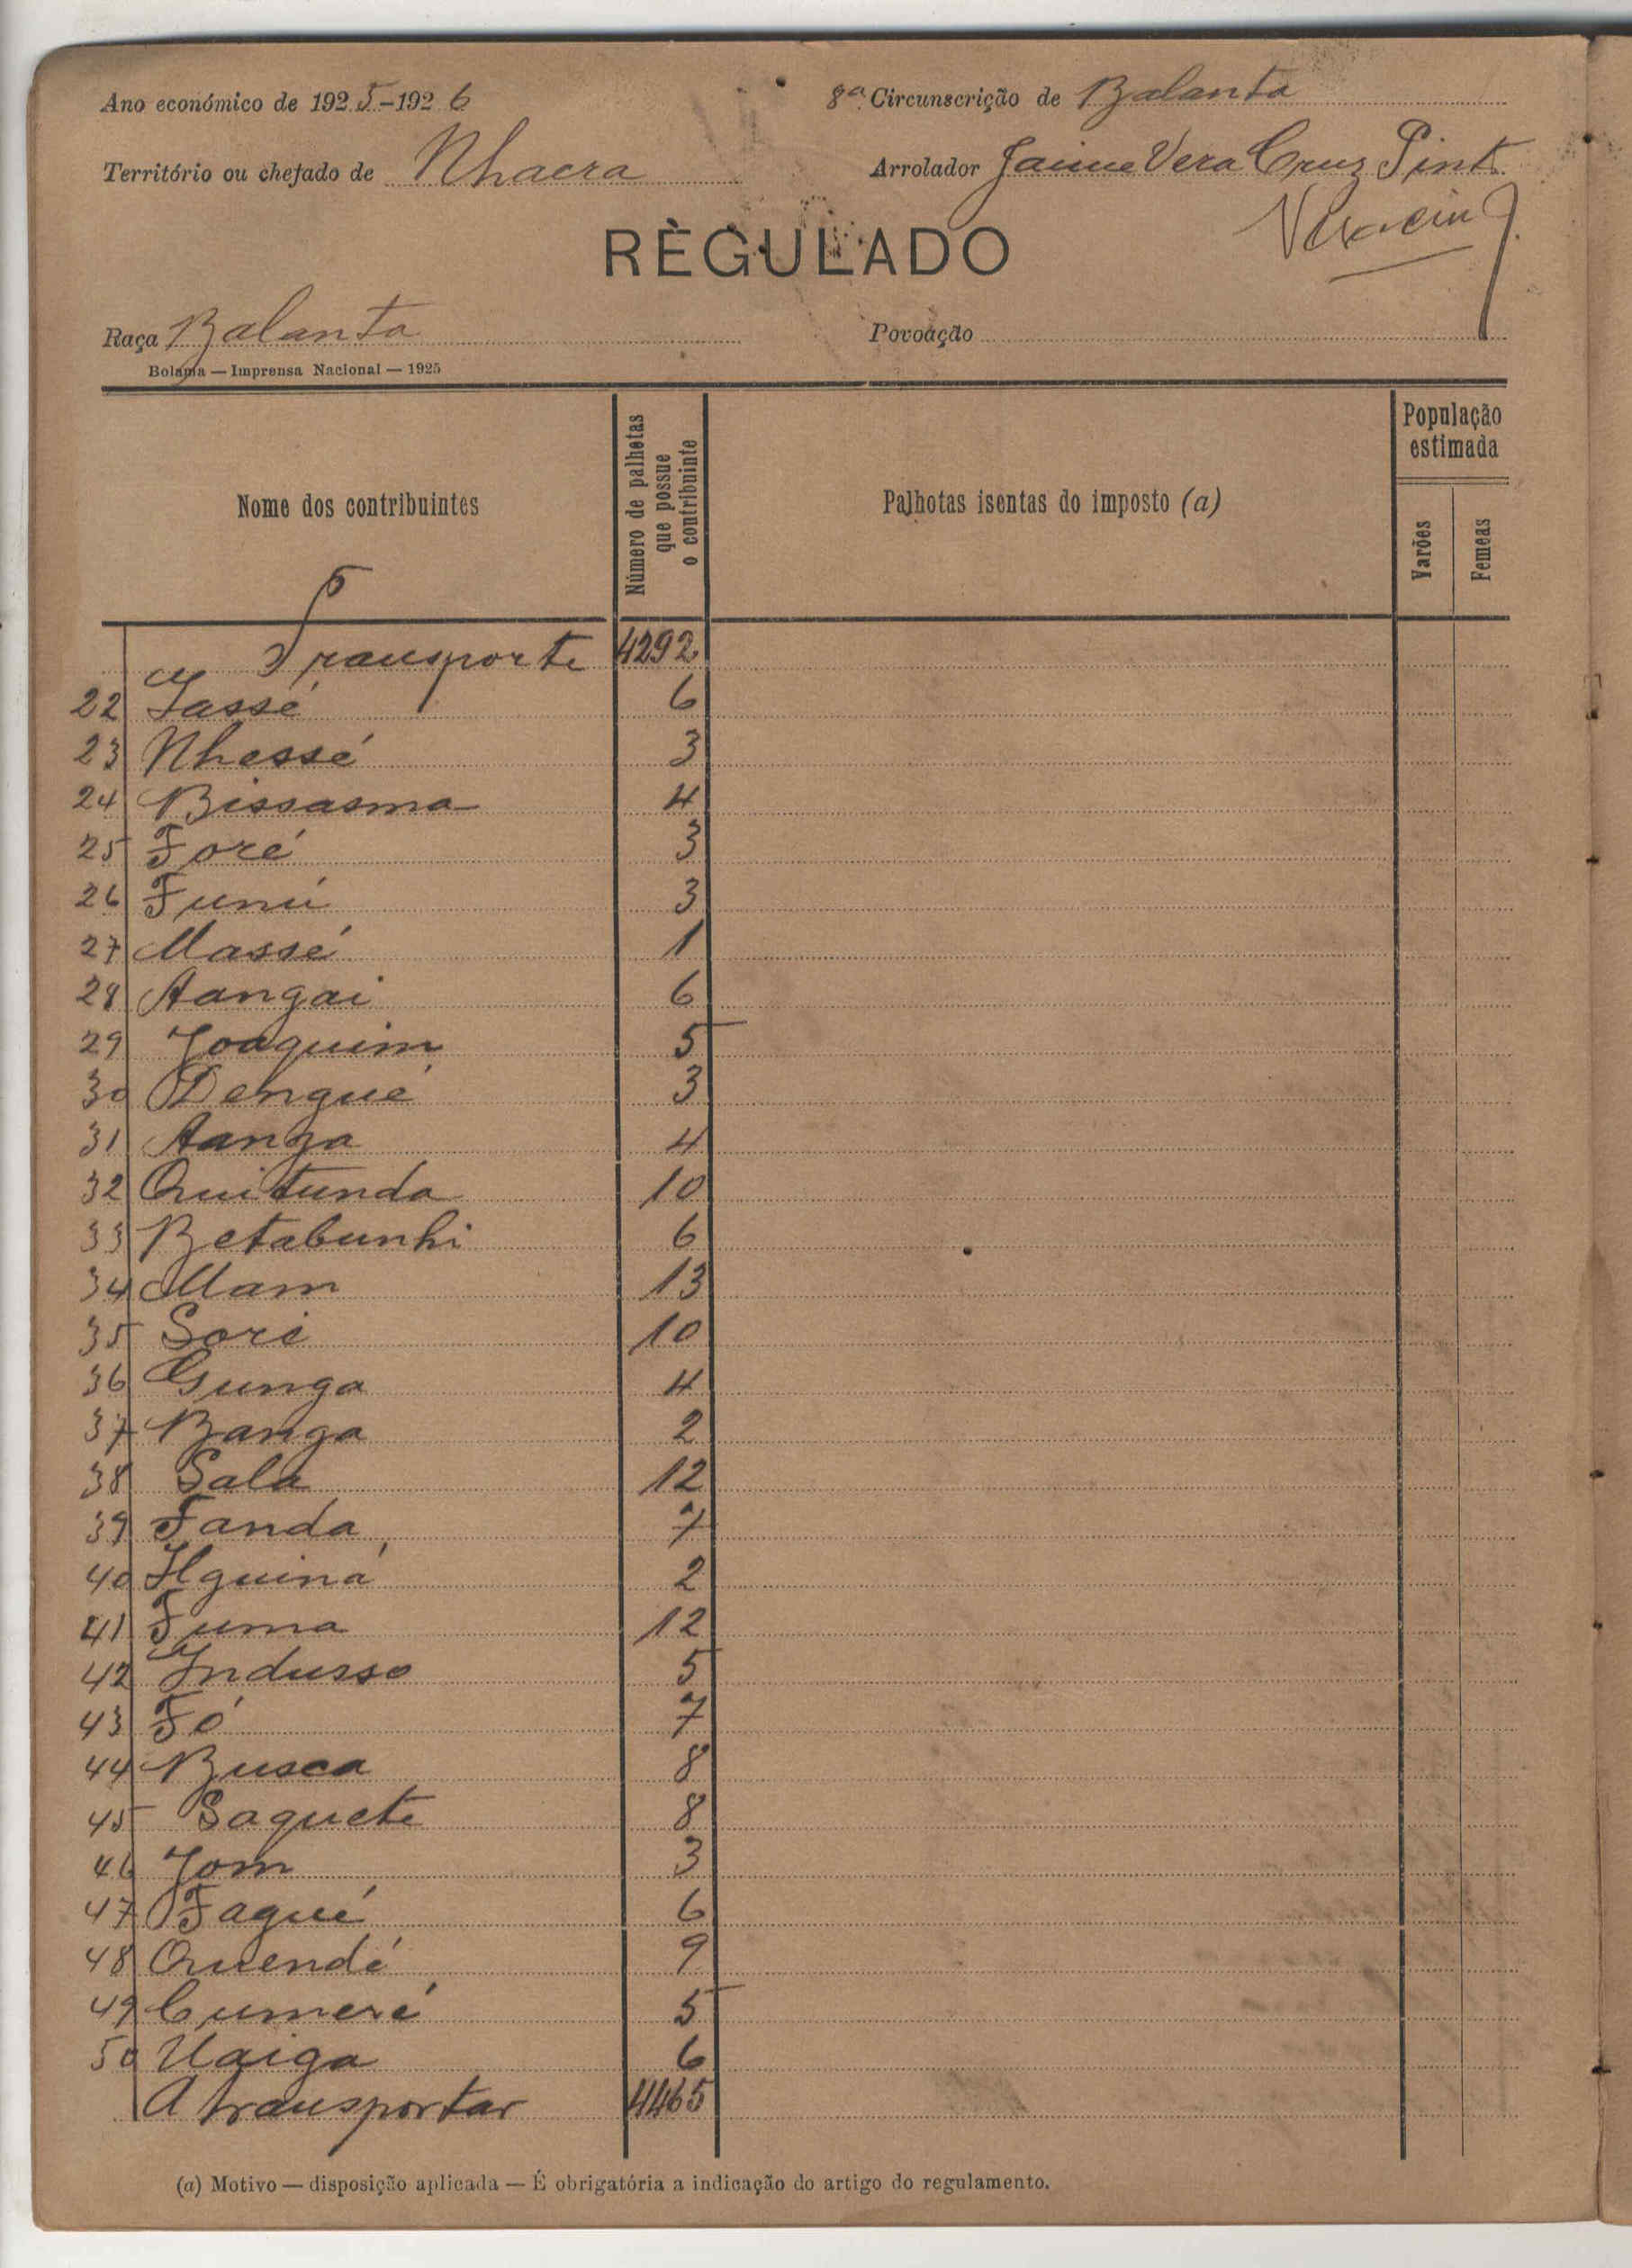 Ano económico de 1925-1926
8ª Circunscrição de Balanta
Território ou chefado de Nhacra
Arrolador Jaime Vera Cruz Pinto
RÈGULADO
Raça Balanta
Povoação
Bolama — Imprensa Nacional — 1925
Nome dos contribuintes
Número de palhotas que possue o contribuinte
Palhotas isentas do imposto (a)
População estimada
Varões
Femeas
Transporte 4292
22 Jassé 6
23 Nhessé 3
24 Bissasma 4
25 Foré 3
26 Funú 3
27 Massé 1
28 Aangai 6
29 Joaquim 5
30 Dengué 3
31 Aanga 4
32 Quitunda 10
33 Betabunhi 6
34 Mam 13
35 Sori 10
36 Gunga 4
37 Banga 2
38 Sala 12
39 Fanda 7
40 Ilguiná 2
41 Fuma 12
42 Indusso 5
43 Fó 7
44 Busca 8
45 Saquete 8
46 Jom 3
47 Fagué 6
48 Quendé 9
49 Cumeré 5
50 Uaiga 6
A transportar 4465
(a) Motivo — disposição aplicada — É obrigatória a indicação do artigo do regulamento.